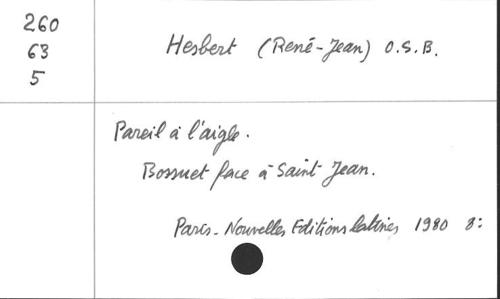 260
63
5
Hesbert (René-Jean) O.S.B.
Pareil à l'aigle.
Bossuet face à Saint Jean.
Paris - Nouvelles Editions latines 1980 8: